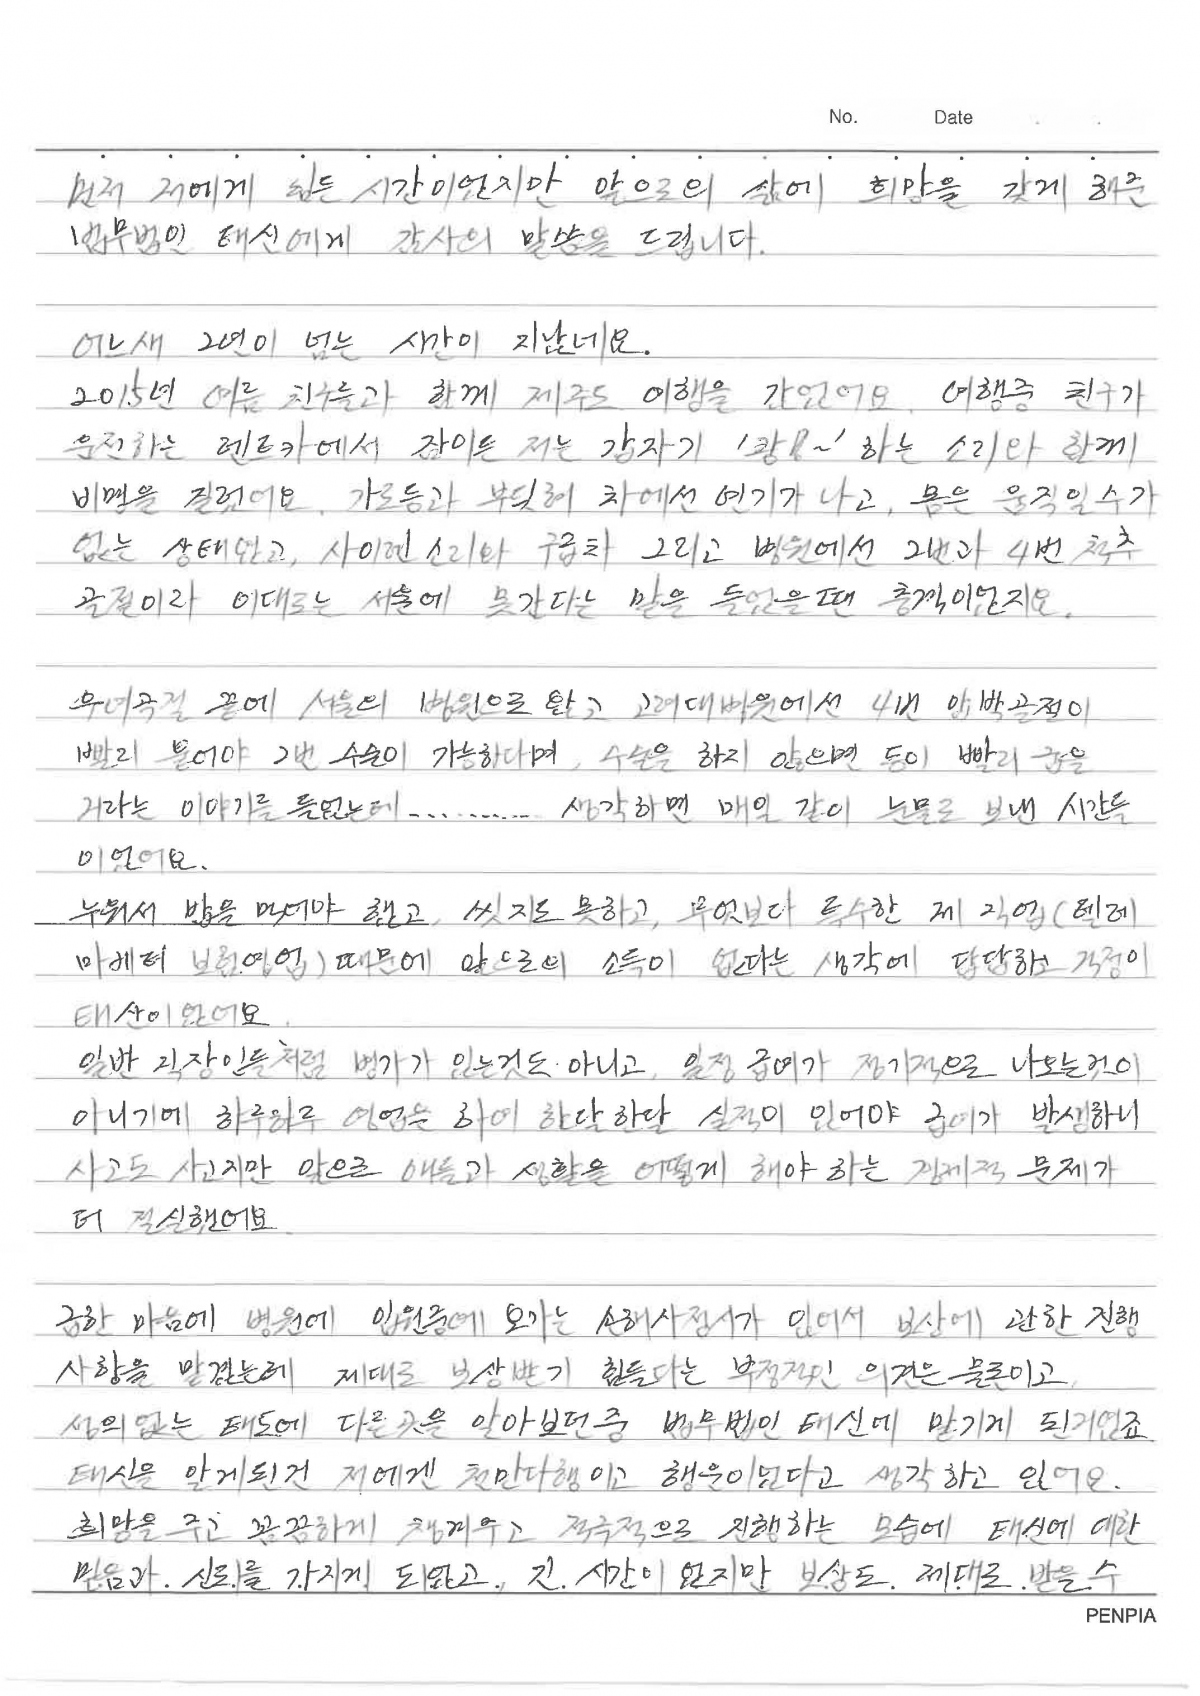 No. Date . .
먼저 저에게 힘든 시간이었지만 앞으로의 삶에 희망을 갖게 해준
법무법인 태신에게 감사의 말씀을 드립니다.
어느새 2년이 넘는 시간이 지났네요.
2015년 여름 친구들과 함께 제주도 여행을 갔었어요. 여행중 친구가
운전하는 렌트카에서 잠이든 저는 갑자기 '쾅!~' 하는 소리와 함께
비명을 질렀어요. 가로등과 부딪혀 차에선 연기가 나고, 몸은 움직일수가
없는 상태였고, 사이렌소리와 구급차 그리고 병원에선 2번과 4번 척추
골절이라 이대로는 서울에 못간다는 말을 들었을때 충격이었지요.
우여곡절 끝에 서울의 병원으로 왔고 고려대병원에선 4번 압박골절이
빨리 붙어야 2번 수술이 가능하다며, 수술을 하지 않으면 등이 빨리 굽을
거라는 이야기를 들었는데........... 생각하면 매일 같이 눈물로 보낸 시간들
이었어요.
누워서 밥을 먹어야 했고, 씻지도 못하고, 무엇보다 특수한 제 직업(텔레
마케터 보험영업) 때문에 앞으로의 소득이 없다는 생각에 답답하고 걱정이
태산이었어요.
일반 직장인들처럼 병가가 있는것도 아니고, 일정 급여가 정기적으로 나오는것이
아니기에 하루하루 영업을 하여 한달한달 실적이 있어야 급여가 발생하니
사고도 사고지만 앞으로 애들과 생활을 어떻게 해야 하는 경제적 문제가
더 절실했어요.
급한 마음에 병원에 입원중에 오가는 손해사정사가 있어서 보상에 관한 진행
사항을 맡겼는데 제대로 보상받기 힘들다는 부정적인 의견은 물론이고,
성의없는 태도에 다른곳을 알아보던중 법무법인 태신에 맡기게 된거였죠.
태신을 알게된건 저에겐 천만다행이고 행운이었다고 생각하고 있어요.
희망을 주고 꼼꼼하게 챙겨주고 적극적으로 진행하는 모습에 태신에 대한
믿음과 신뢰를 가지게 되었고, 긴 시간이 였지만 보상도 제대로 받을 수
PENPIA